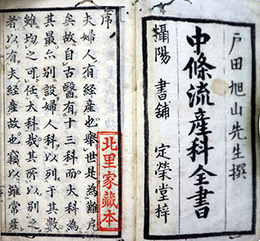 戸田旭山先生撰
中條流産科全書
攝陽 書舗 定榮堂梓
序
夫婦人有経産也舉世是為難
矣故自古醫有十三科而大科為
其最也別設婦人科以列于其
雖均之可任大科哉其所以別之
者以有夫経産故也竊以雖常産
北里家藏本